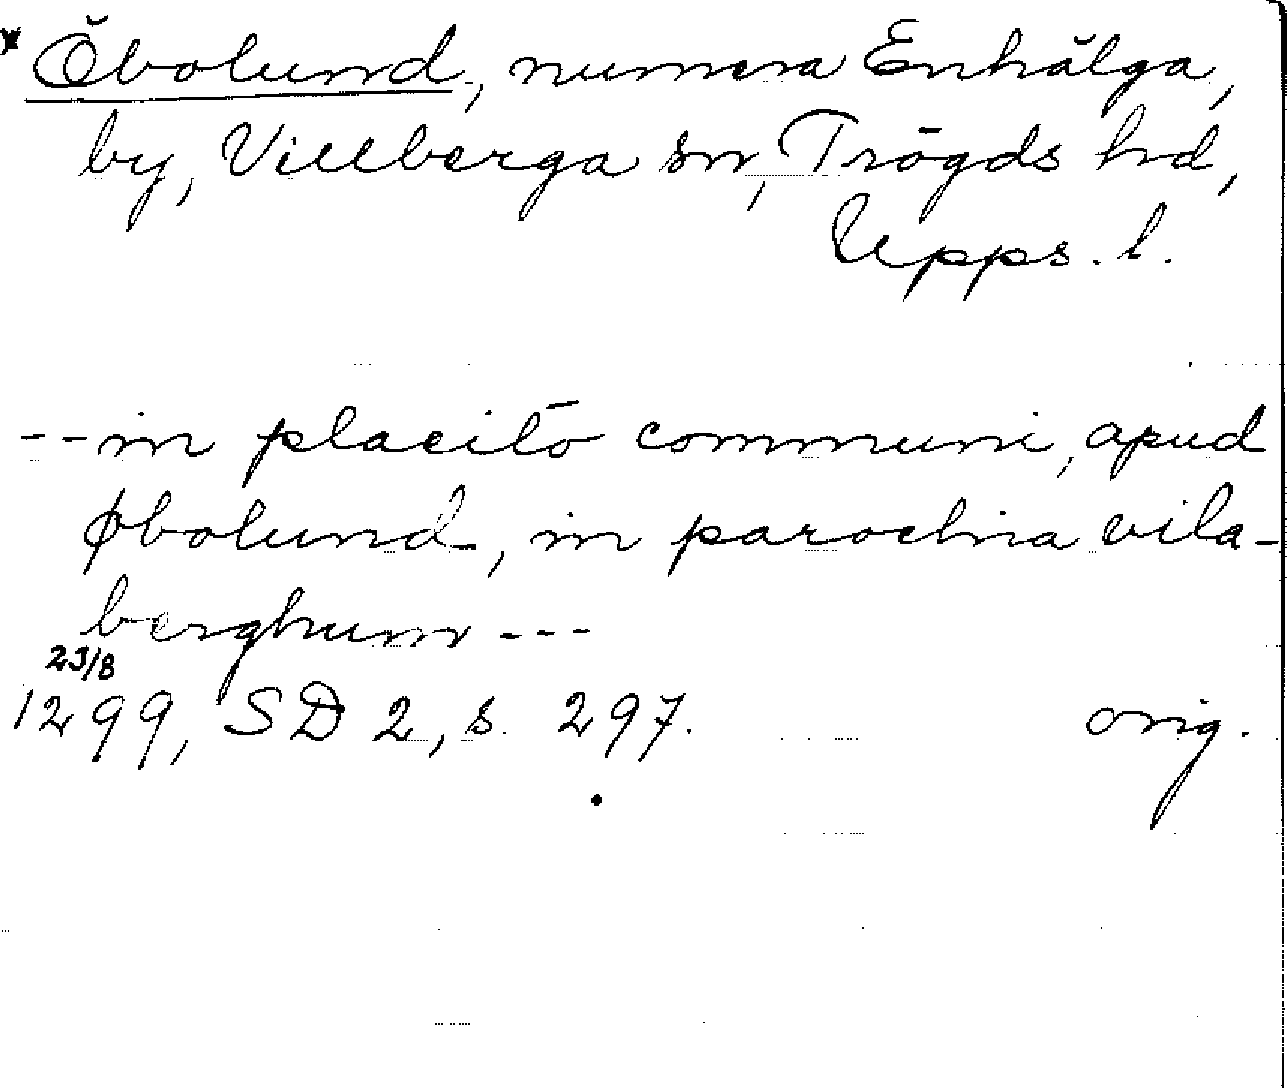 * Öbolund, numera Enhälga,
by, Villberga sn, Trögds hd,
Upps. l.
--in placito communi, apud
Øbolund, in parochia vila-
berghum ---
23/8
1299, SD 2, s. 297. orig.